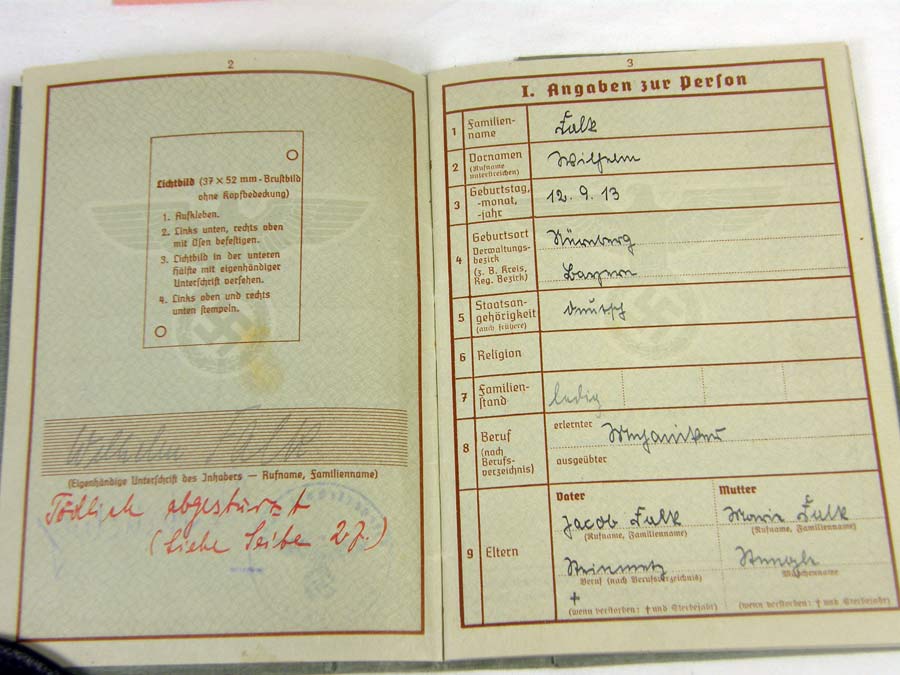 2
Lichtbild (37 × 52 mm - Brustbild
ohne Kopfbedeckung)
1. Aufkleben.
2. Links unten, rechts oben
mit Ösen befestigen.
3. Lichtbild in der unteren
Hälfte mit eigenhändiger
Unterschrift versehen.
4. Links oben und rechts
unten stempeln.
Wilhelm Falk
(Eigenhändige Unterschrift des Inhabers — Rufname, Familienname)
Tödlich abgestürzt
(siehe Seite 2.f.)
3
I. Angaben zur Person
1 Familien-
name
Falk
2 Vornamen
(Rufname
unterstreichen)
Wilhelm
3 Geburtstag,
-monat,
-jahr
12. 9. 13
4 Geburtsort
Verwaltungs-
bezirk
(z. B. Kreis,
Reg. Bezirk)
Nürnberg
Bayern
5 Staatsan-
gehörigkeit
(auch frühere)
deutsch
6 Religion
7 Familien-
stand
ledig
8 Beruf
(nach
Berufs-
verzeichnis)
erlernter Mechaniker
ausgeübter
9 Eltern
Vater
Jacob Falk
(Rufname, Familienname)
Steinmetz
Beruf (nach Berufsverzeichnis)
+
(wenn verstorben: † und Sterbejahr)
Mutter
Marie Falk
(Rufname, Familienname)
Mädchenname
(wenn verstorben: † und Sterbejahr)